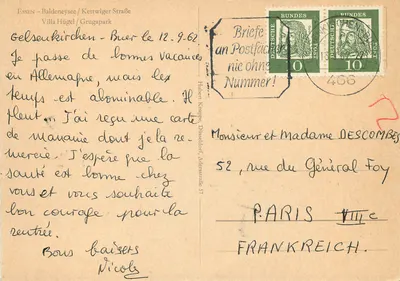 Essen - Baldeneysee / Kettwiger Straße
Villa Hügel / Grugapark
Gelsenkirchen - Buer le 12.9.62
Je passe de bonnes vacances
en Allemagne, mais les
temps est abominable. Il
pleut. J'ai reçu une carte
de mamie dont je la re-
mercie. J'espère que la
santé est bonne chez
vous et vous souhaite
bon courage pour la
rentrée.
Bons baisers
Nicole
Briefe
an Postfächer
nie ohne
Nummer!
DEUTSCHE BUNDESPOST
10
DEUTSCHE BUNDESPOST
10
466
Monsieur et Madame DESCOMBES
52, rue du Général Foy
PARIS VIIIe
FRANKREICH.